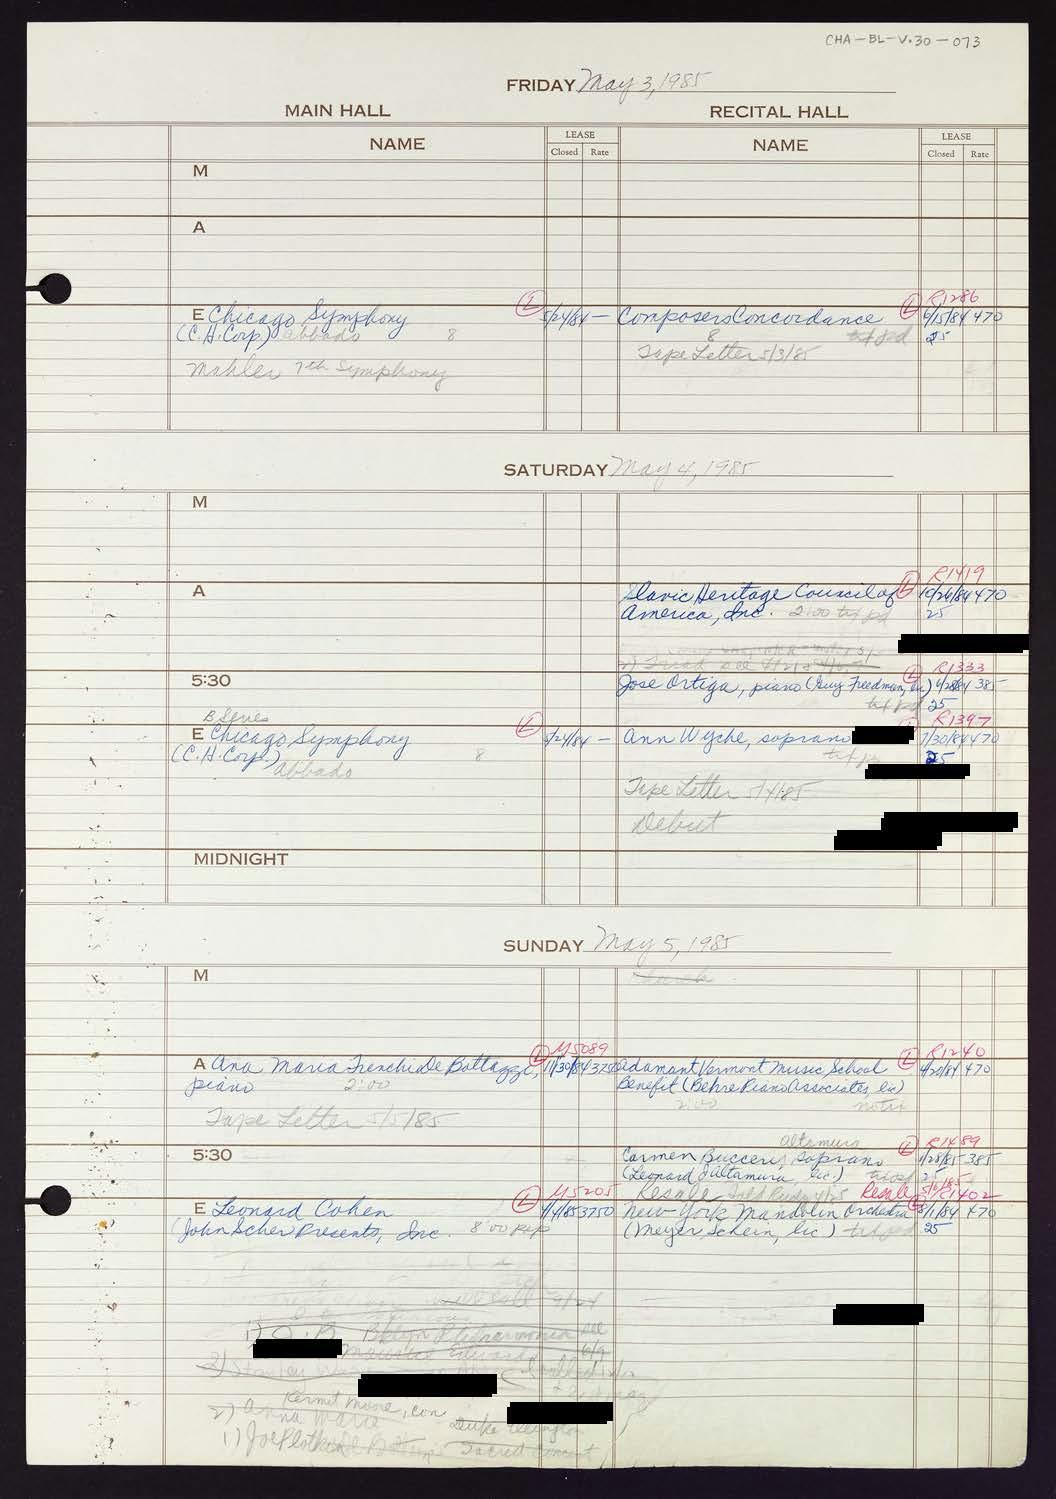 CHA-BL-V.30-073
FRIDAY May 3, 1985
MAIN HALL
RECITAL HALL
NAME
LEASE
Closed Rate
NAME
LEASE
Closed Rate
M
A
E Chicago Symphony
(C.H. Corp) Abbado 8
Mahler 7th Symphony
L
5/24/84 —
Composers Concordance
8 txt pd
Tape Letter 5/3/85
L R1286
6/15/84 470
25
SATURDAY May 4, 1985
M
A
Slavic Heritage Council of
America, Inc. 2:00 txt pd
L R1419
10/26/84 470
25
5:30
Jose Ortiga, piano (Guy Freedman, lic)
txt pd
L R1333
385
25
B Series
E Chicago Symphony
(C.H. Corp.) 8
Abbado
L
5/24/84 —
Ann Wyche, soprano
R1397
7/30/84 470
25
Tape Letter 5/4/85
Debut
MIDNIGHT
SUNDAY May 5, 1985
M
A Ana Maria Trenchi De Bottazzi,
piano 2:00
Tape Letter 5/5/85
L M5089
11/30/84 3750
Adamant Vermont Music School
Benefit (Behre Piano Associates, lic)
2:00 notix
L R1240
4/20/84 470
5:30
Altamura
Carmen Bucceri, soprano
(Leonard J Altamura, lic)
L R1489
1/28/85 385
25
Resale
Resale
R1402
E Leonard Cohen
(John Scher Presents, Inc. 8:00
L M5205
3750
New York Mandolin Orchestra
(Meyer Schein, lic) txt pd
8/1/84 470
25
1) Bklyn Philharmonia
Kermit Moore, con.
2) Anna Marie
Duke Ellington
1) Joe Plotkin
Sacred Concert